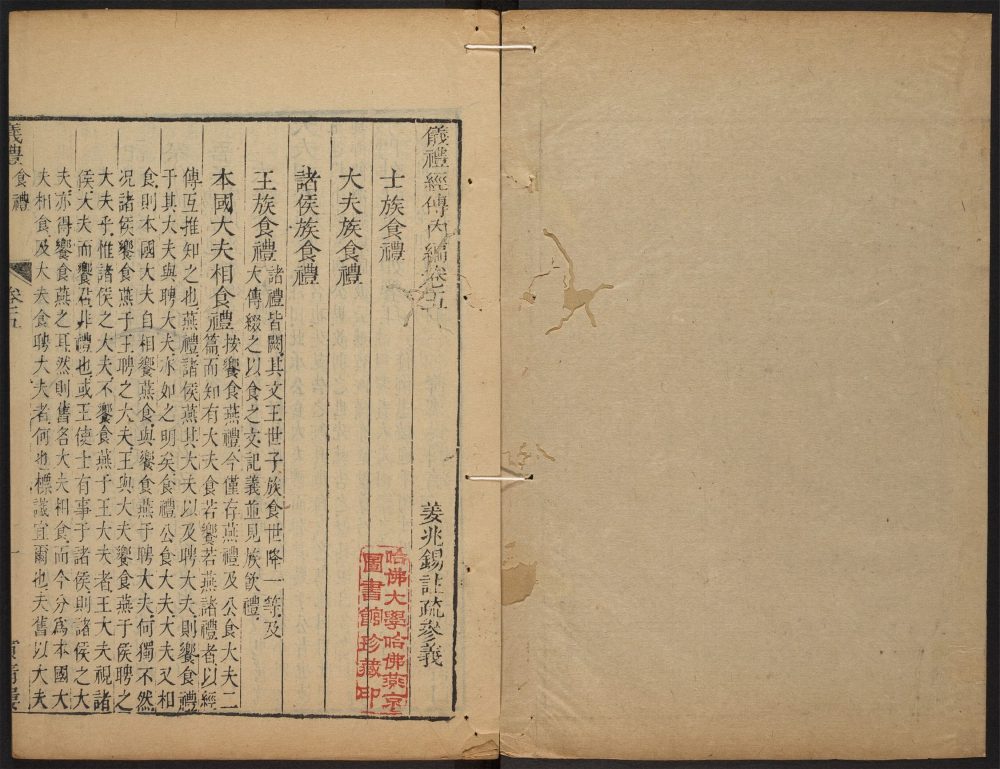 儀禮經傳內編卷五
姜兆錫註疏參義
士族食禮
大夫族食禮
諸侯族食禮
王族食禮 諸禮皆闕其文王世子族食世降一等及
大傳綴之以食之文記義並見族飲禮
本國大夫相食禮 按饗食燕禮今僅存燕禮及公食大夫二
篇而知有大夫食若饗若燕諸禮者以經
傳互推知之也燕禮諸侯燕其大夫以及聘大夫則饗食禮
于其大夫與聘大夫亦如之明矣食禮公食大夫大夫又相
食則本國大夫自相饗燕食與饗食燕于聘大夫何獨不然
况諸侯饗食燕于王聘之大夫王與大夫饗食燕于侯聘之
大夫乎惟諸侯之大夫不饗食燕于王大夫者王大夫視諸
侯大夫而饗君非禮也或王使士有事于諸侯則諸侯之大
夫亦得饗食燕之耳然則舊名大夫相食而今分為本國大
夫相食及大夫食聘大夫者何也標議宜爾也夫舊以大夫
儀禮 食禮
卷五
一
哈佛大學哈佛燕京
圖書館珍藏印